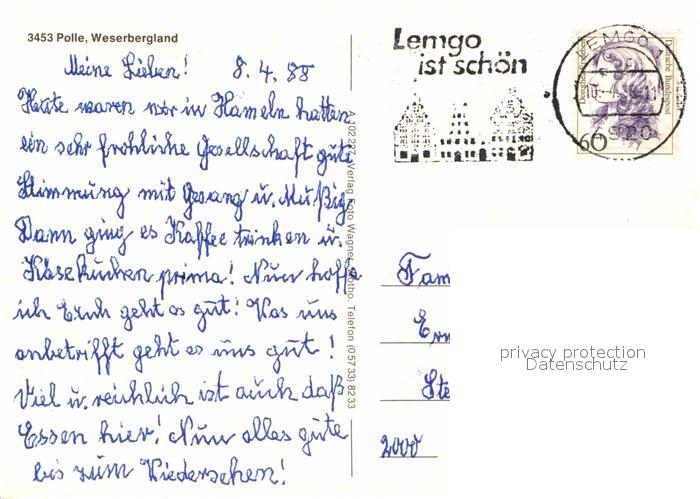 3453 Polle, Weserbergland
Meine Lieben! 8. 4. 88
Heute waren wir in Hameln hatten
ein sehr fröhliche Gesellschaft gute
Stimmung mit Gesang u. Mußig.
Dann ging es Kaffee trinken u.
Käsekuchen prima! Nun hoffe
ich Euch geht es gut! Was uns
anbetrifft geht es uns gut!
Viel u. reichlich ist auch daß
Essen hier! Nun alles gute
bis zum Wiedersehen!
Verlag Foto Wagner, Vlotho. Telefon (05733) 8233
Lemgo
ist schön
LEMGO 1
Deutsche Bundespost
60
Fam
Ste
2000
privacy protection
Datenschutz